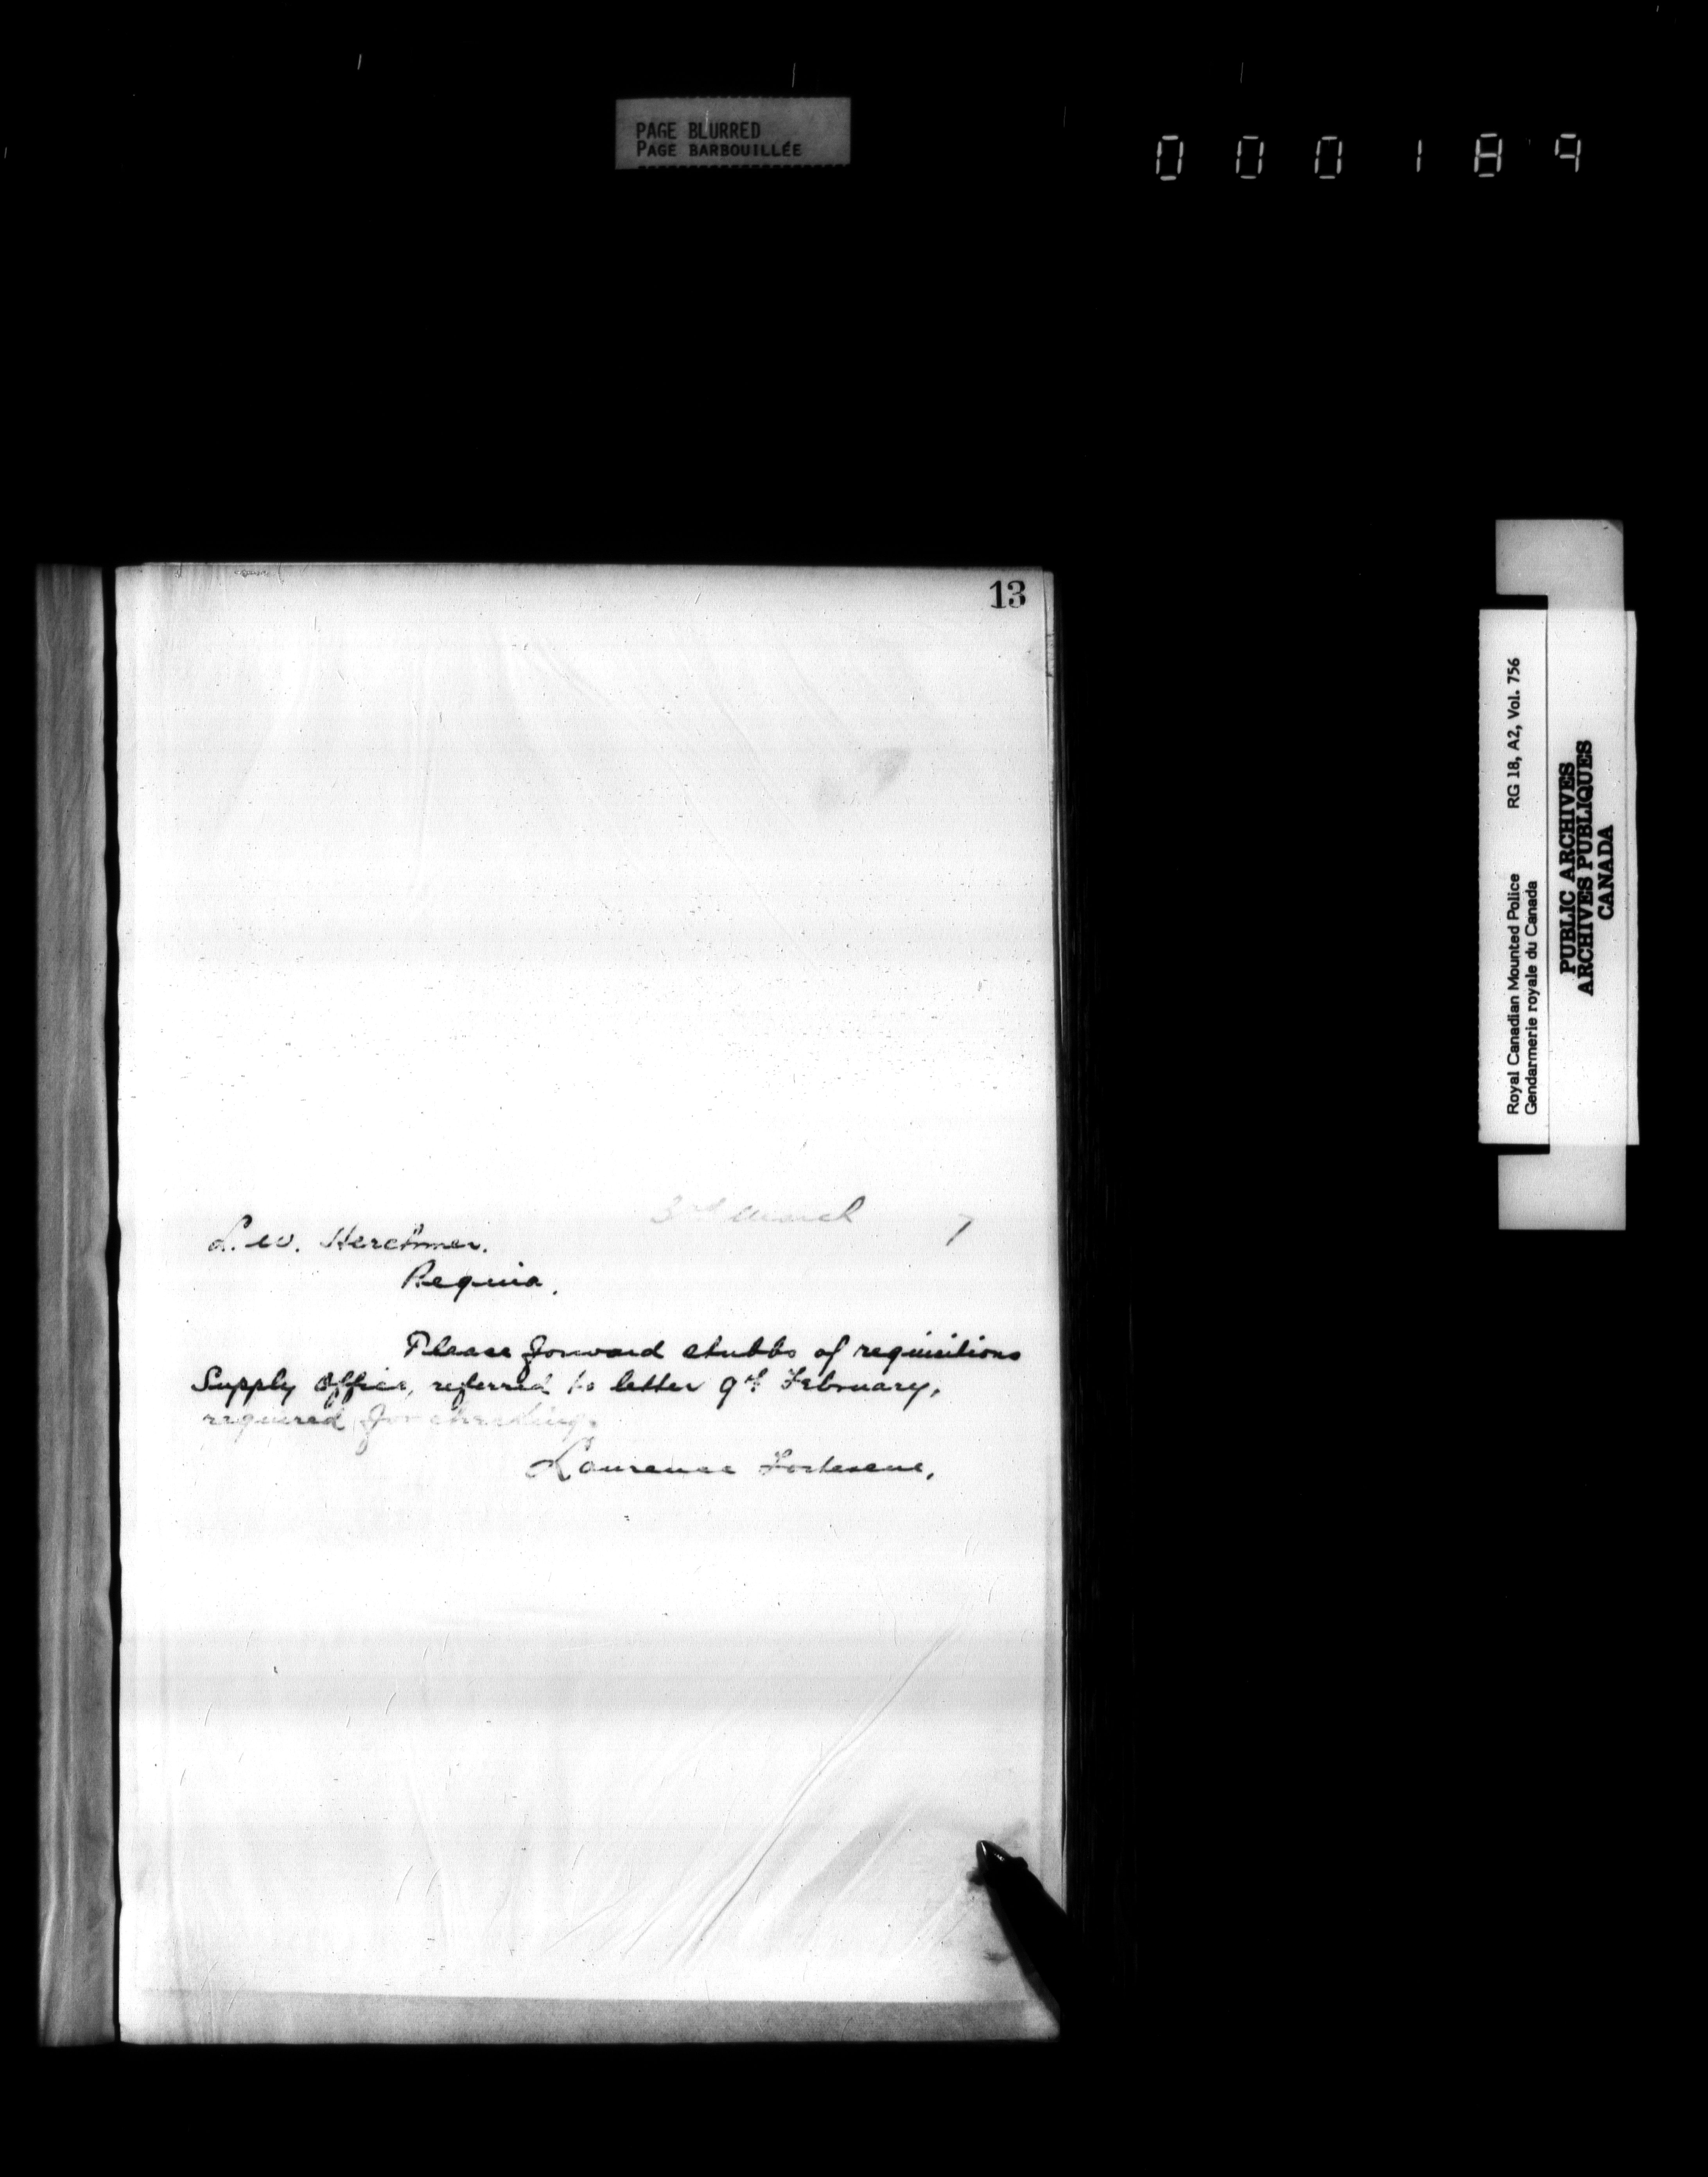 PAGE BLURRED
PAGE BARBOUILLÉE
000189
13
3rd March 7
L. W. Herchmer.
Regina.
Please forward stubbs of requisitions
Supply Officer, referred to letter 9th February,
required for checking.
Laurence Fortescue,
Royal Canadian Mounted Police RG 18, A2, Vol. 756
Gendarmerie royale du Canada
PUBLIC ARCHIVES
ARCHIVES PUBLIQUES
CANADA